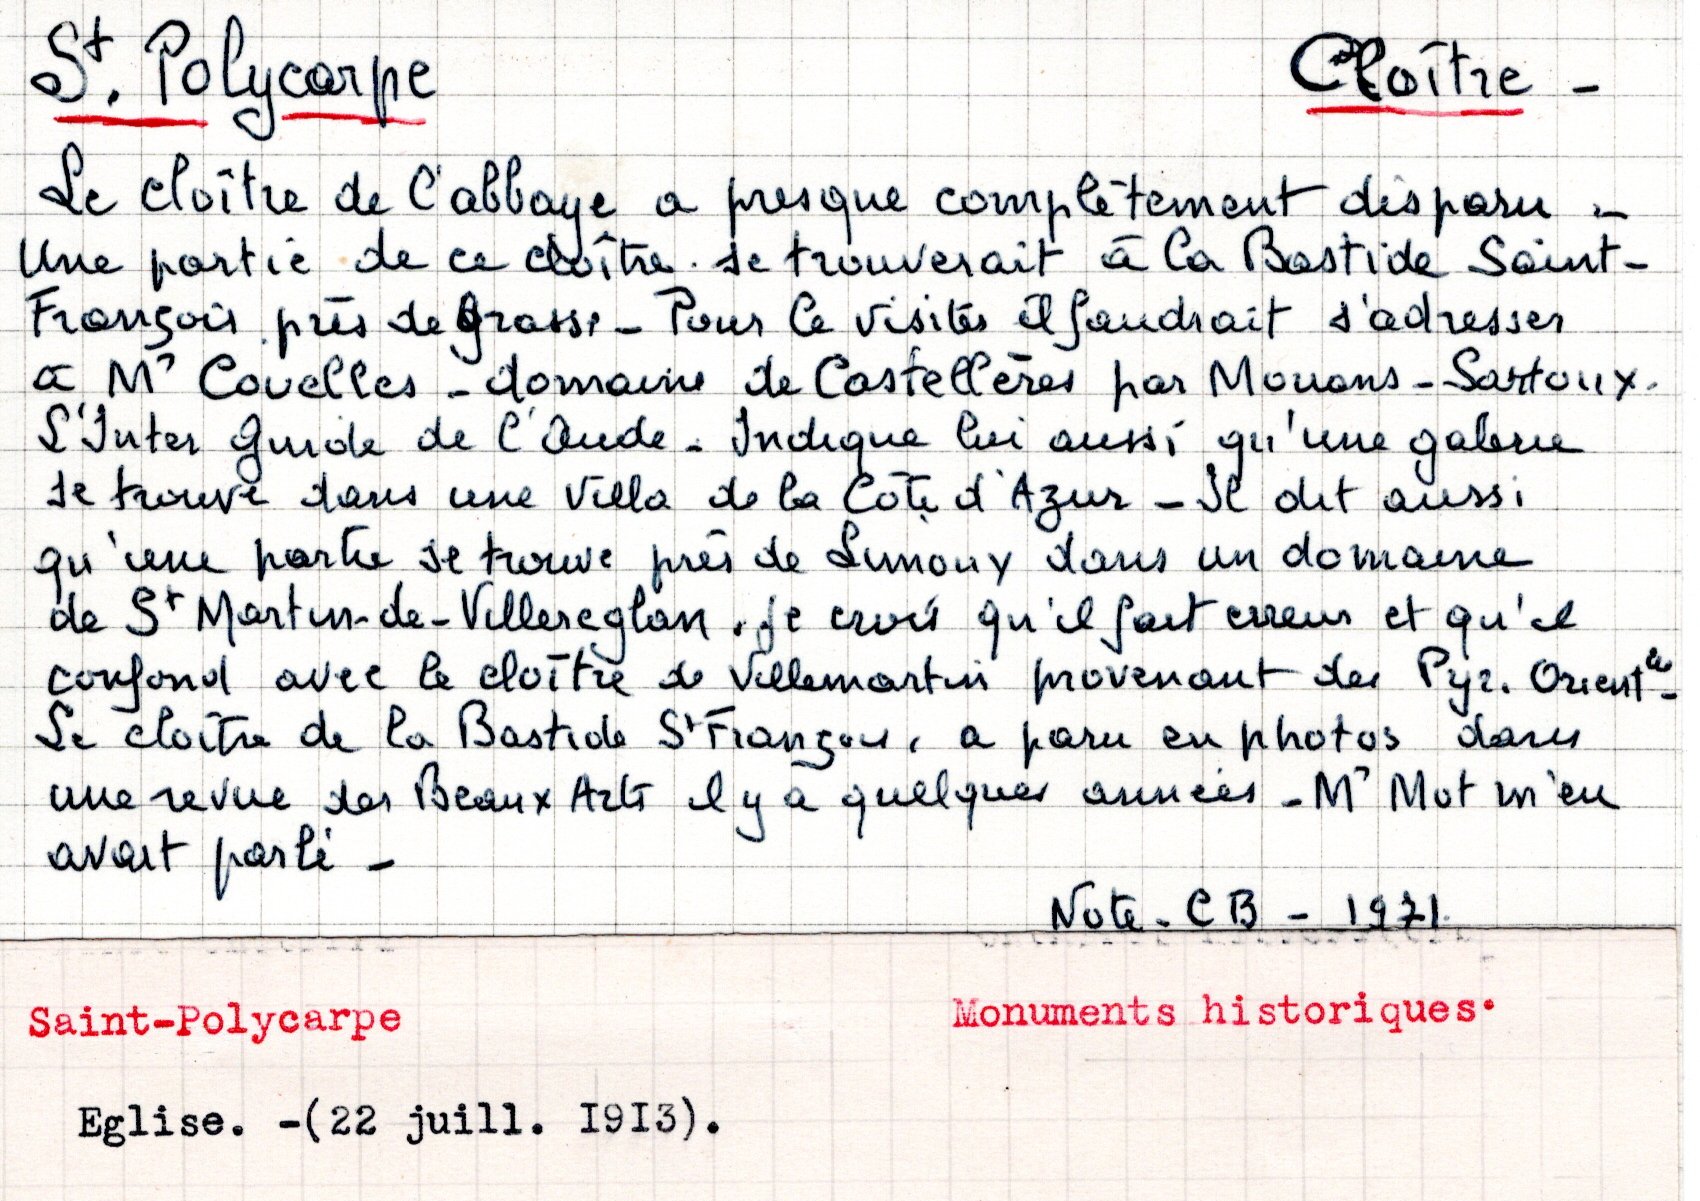 St. Polycarpe Cloître -
Le cloître de l'abbaye a presque complètement disparu -
Une partie de ce cloître se trouverait à la Bastide Saint-
François près de Grasse - Pour le visiter il faudrait s'adresser
à Mr Covelles - domaine de Castellèras par Mouans-Sartoux.
L'Inter Guide de l'Aude - Indique lui aussi qu'une galerie
se trouve dans une villa de la Côte d'Azur - Il dit aussi
qu'une partie se trouve près de Limoux dans un domaine
de St Martin-de-Villereglan. je crois qu'il fait erreur et qu'il
confond avec le cloître de Villemartin provenant des Pyr. Orientles -
Le cloître de la Bastide St François, a paru en photos dans
une revue des Beaux Arts il y a quelques années - Mr Mot m'en
avait parlé -
Note - CB - 1971.
Saint-Polycarpe Monuments historiques.
Eglise. -(22 juill. I9I3).